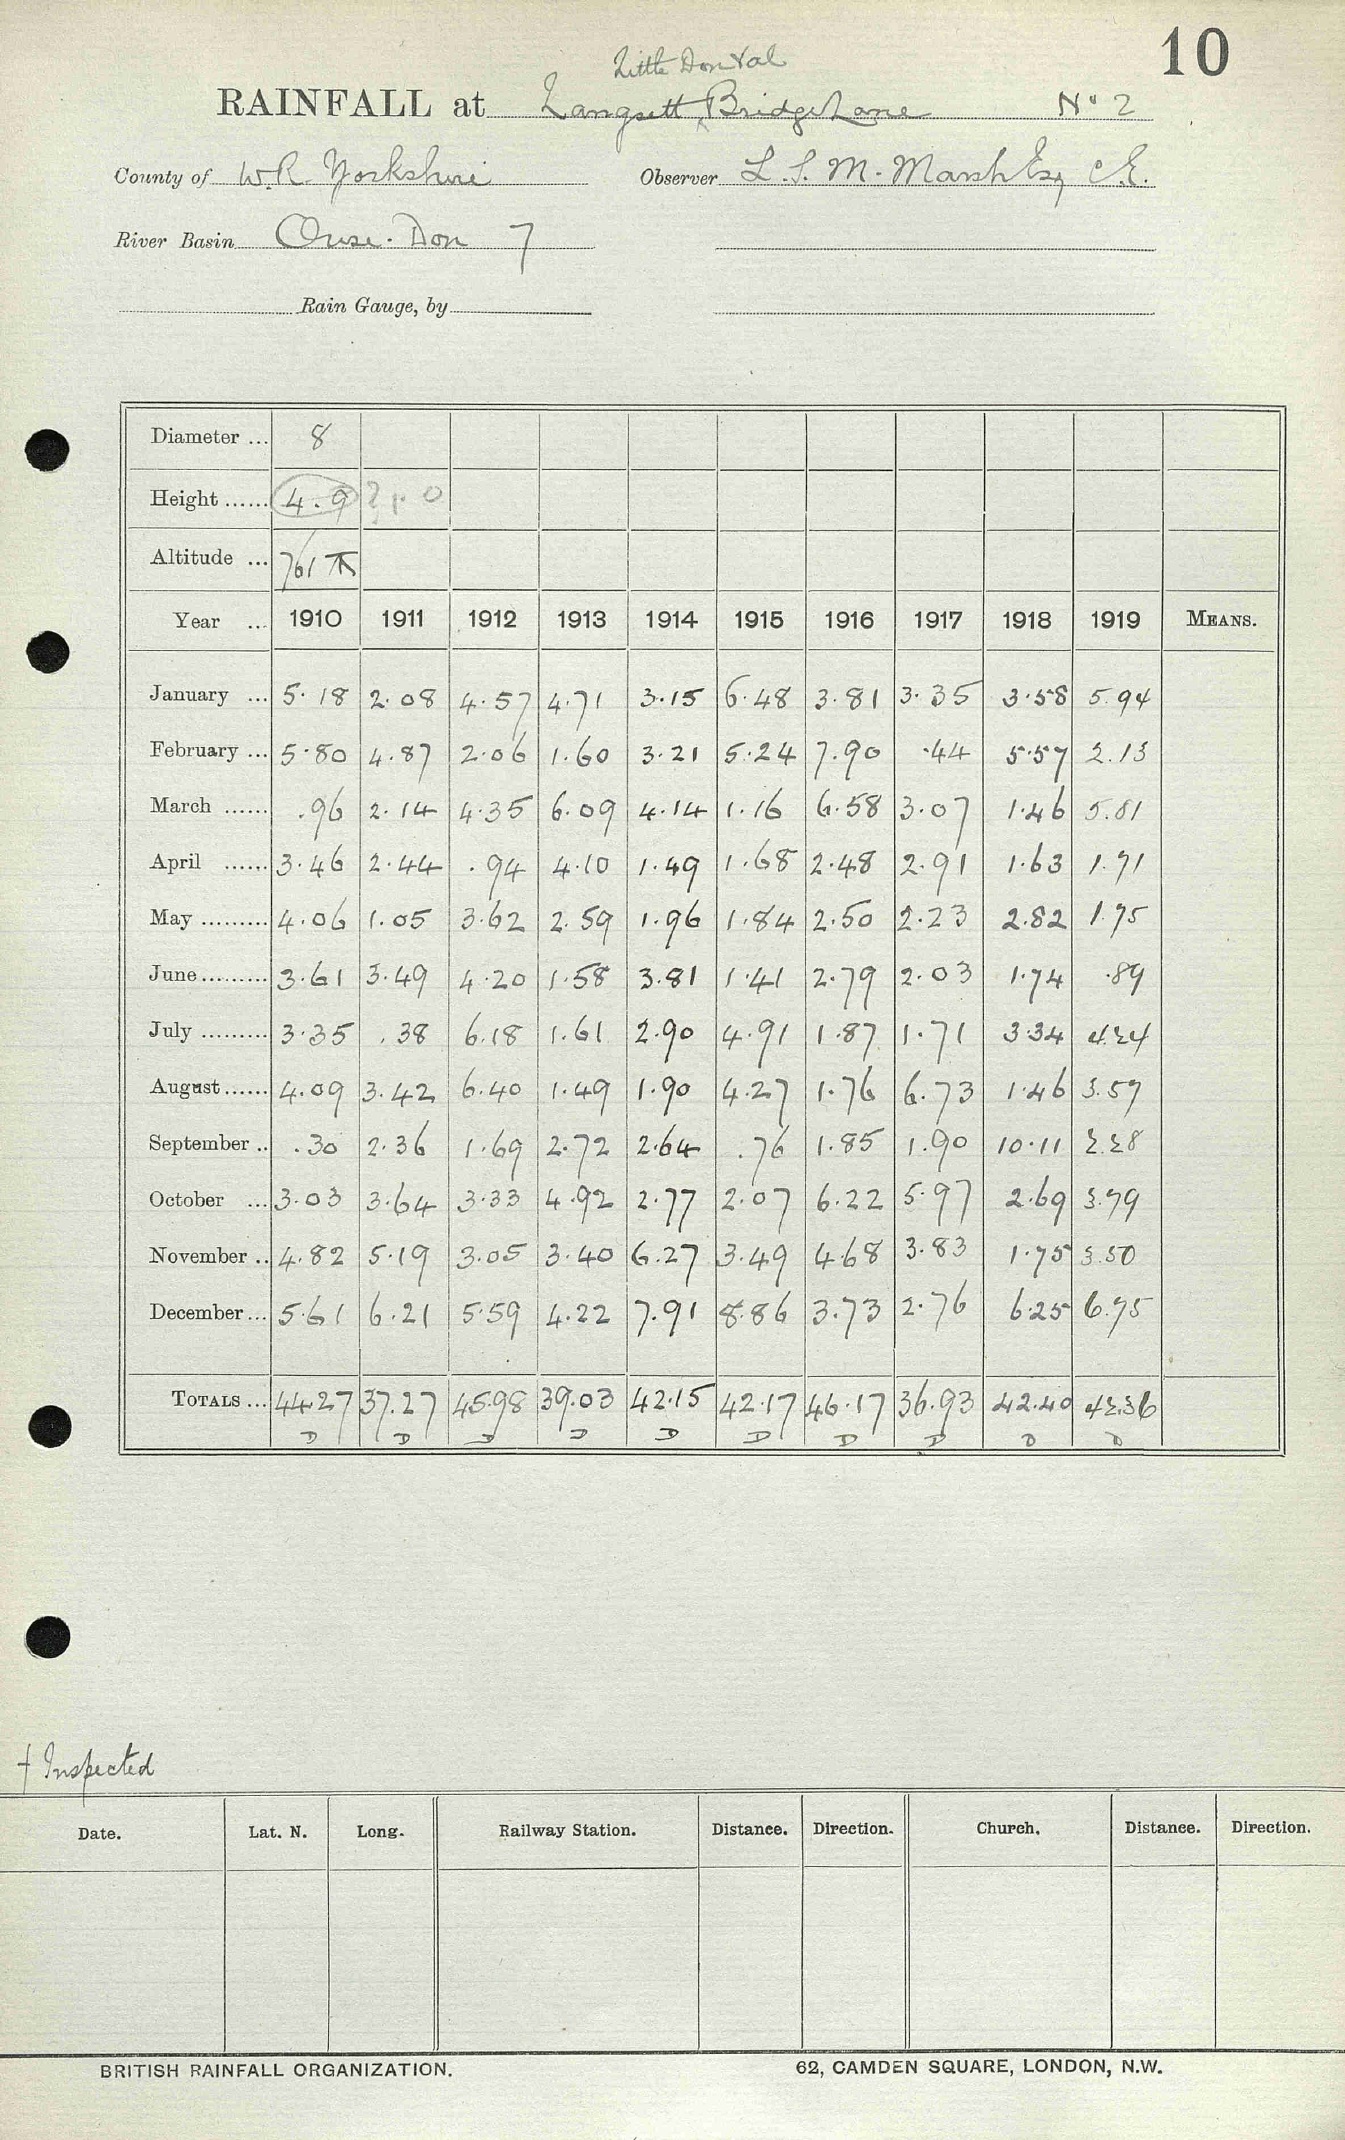 10
Little Don Val
RAINFALL at Langsett Bridge Lane No 2
County of W.R. Yorkshire Observer L. S. M. Marsh Esq C.E.
River Basin Ouse. Don 7
Rain Gauge, by
Diameter ... 8
Height ...... 4.9 ? 1.0
Altitude ... 761
Year ... 1910 1911 1912 1913 1914 1915 1916 1917 1918 1919 MEANS.
January ... 5.18 2.08 4.57 4.71 3.15 6.48 3.81 3.35 3.58 5.94
February ... 5.80 4.87 2.06 1.60 3.21 5.24 7.90 .44 5.57 2.13
March ...... .96 2.14 4.35 6.09 4.14 1.16 6.58 3.07 1.46 5.81
April ...... 3.46 2.44 .94 4.10 1.49 1.68 2.48 2.91 1.63 1.71
May ......... 4.06 1.05 3.62 2.59 1.96 1.84 2.50 2.23 2.82 1.75
June ......... 3.61 3.49 4.20 1.58 3.81 1.41 2.79 2.03 1.74 .89
July ......... 3.35 .38 6.18 1.61 2.90 4.91 1.87 1.71 3.34 4.24
August ...... 4.09 3.42 6.40 1.49 1.90 4.27 1.76 6.73 1.46 3.57
September .. .30 2.36 1.69 2.72 2.64 .76 1.85 1.90 10.11 2.28
October ... 3.03 3.64 3.33 4.92 2.77 2.07 6.22 5.97 2.69 3.79
November .. 4.82 5.19 3.05 3.40 6.27 3.49 4.68 3.83 1.75 3.50
December ... 5.61 6.21 5.59 4.22 7.91 8.86 3.73 2.76 6.25 6.75
TOTALS ... 44.27 37.27 45.98 39.03 42.15 42.17 46.17 36.93 42.40 42.36
D D D D D D D D D D
† Inspected
Date. Lat. N. Long. Railway Station. Distance. Direction. Church. Distance. Direction.
BRITISH RAINFALL ORGANIZATION. 62, CAMDEN SQUARE, LONDON, N.W.